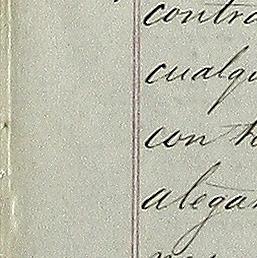 contra
cualqu
con t
alegar